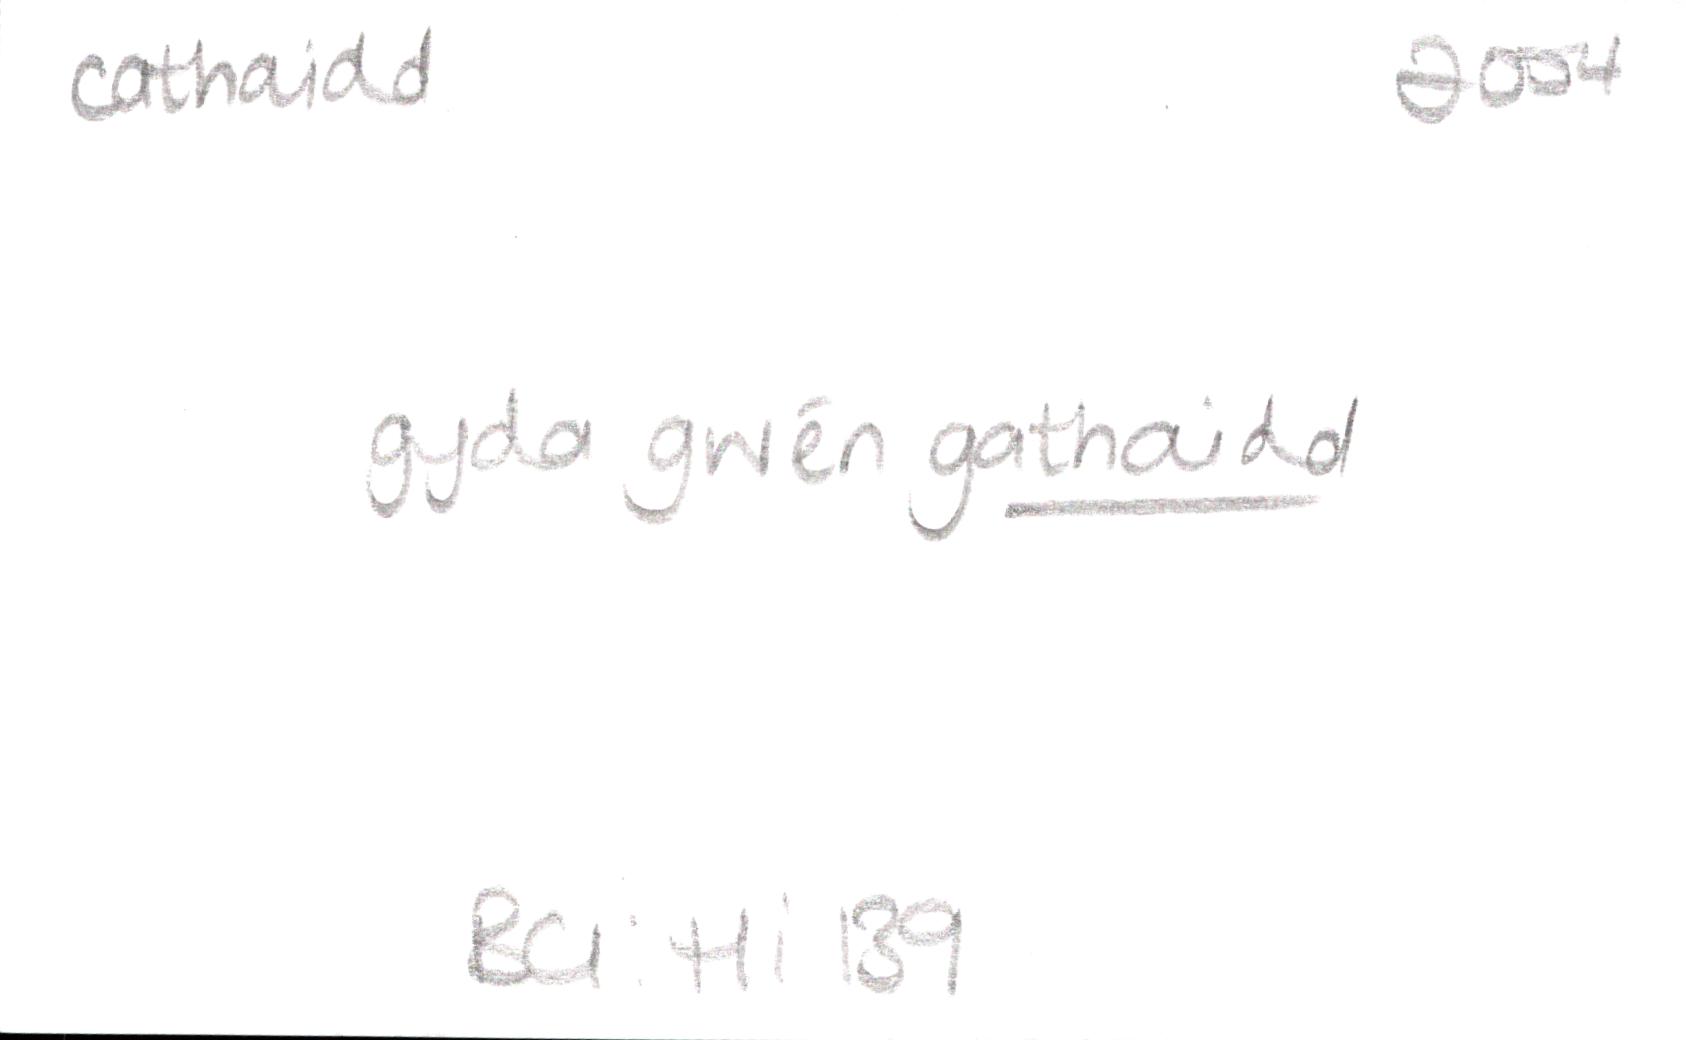 cathaidd 2004
gyda gwên gathaidd
BCI: Hi 139